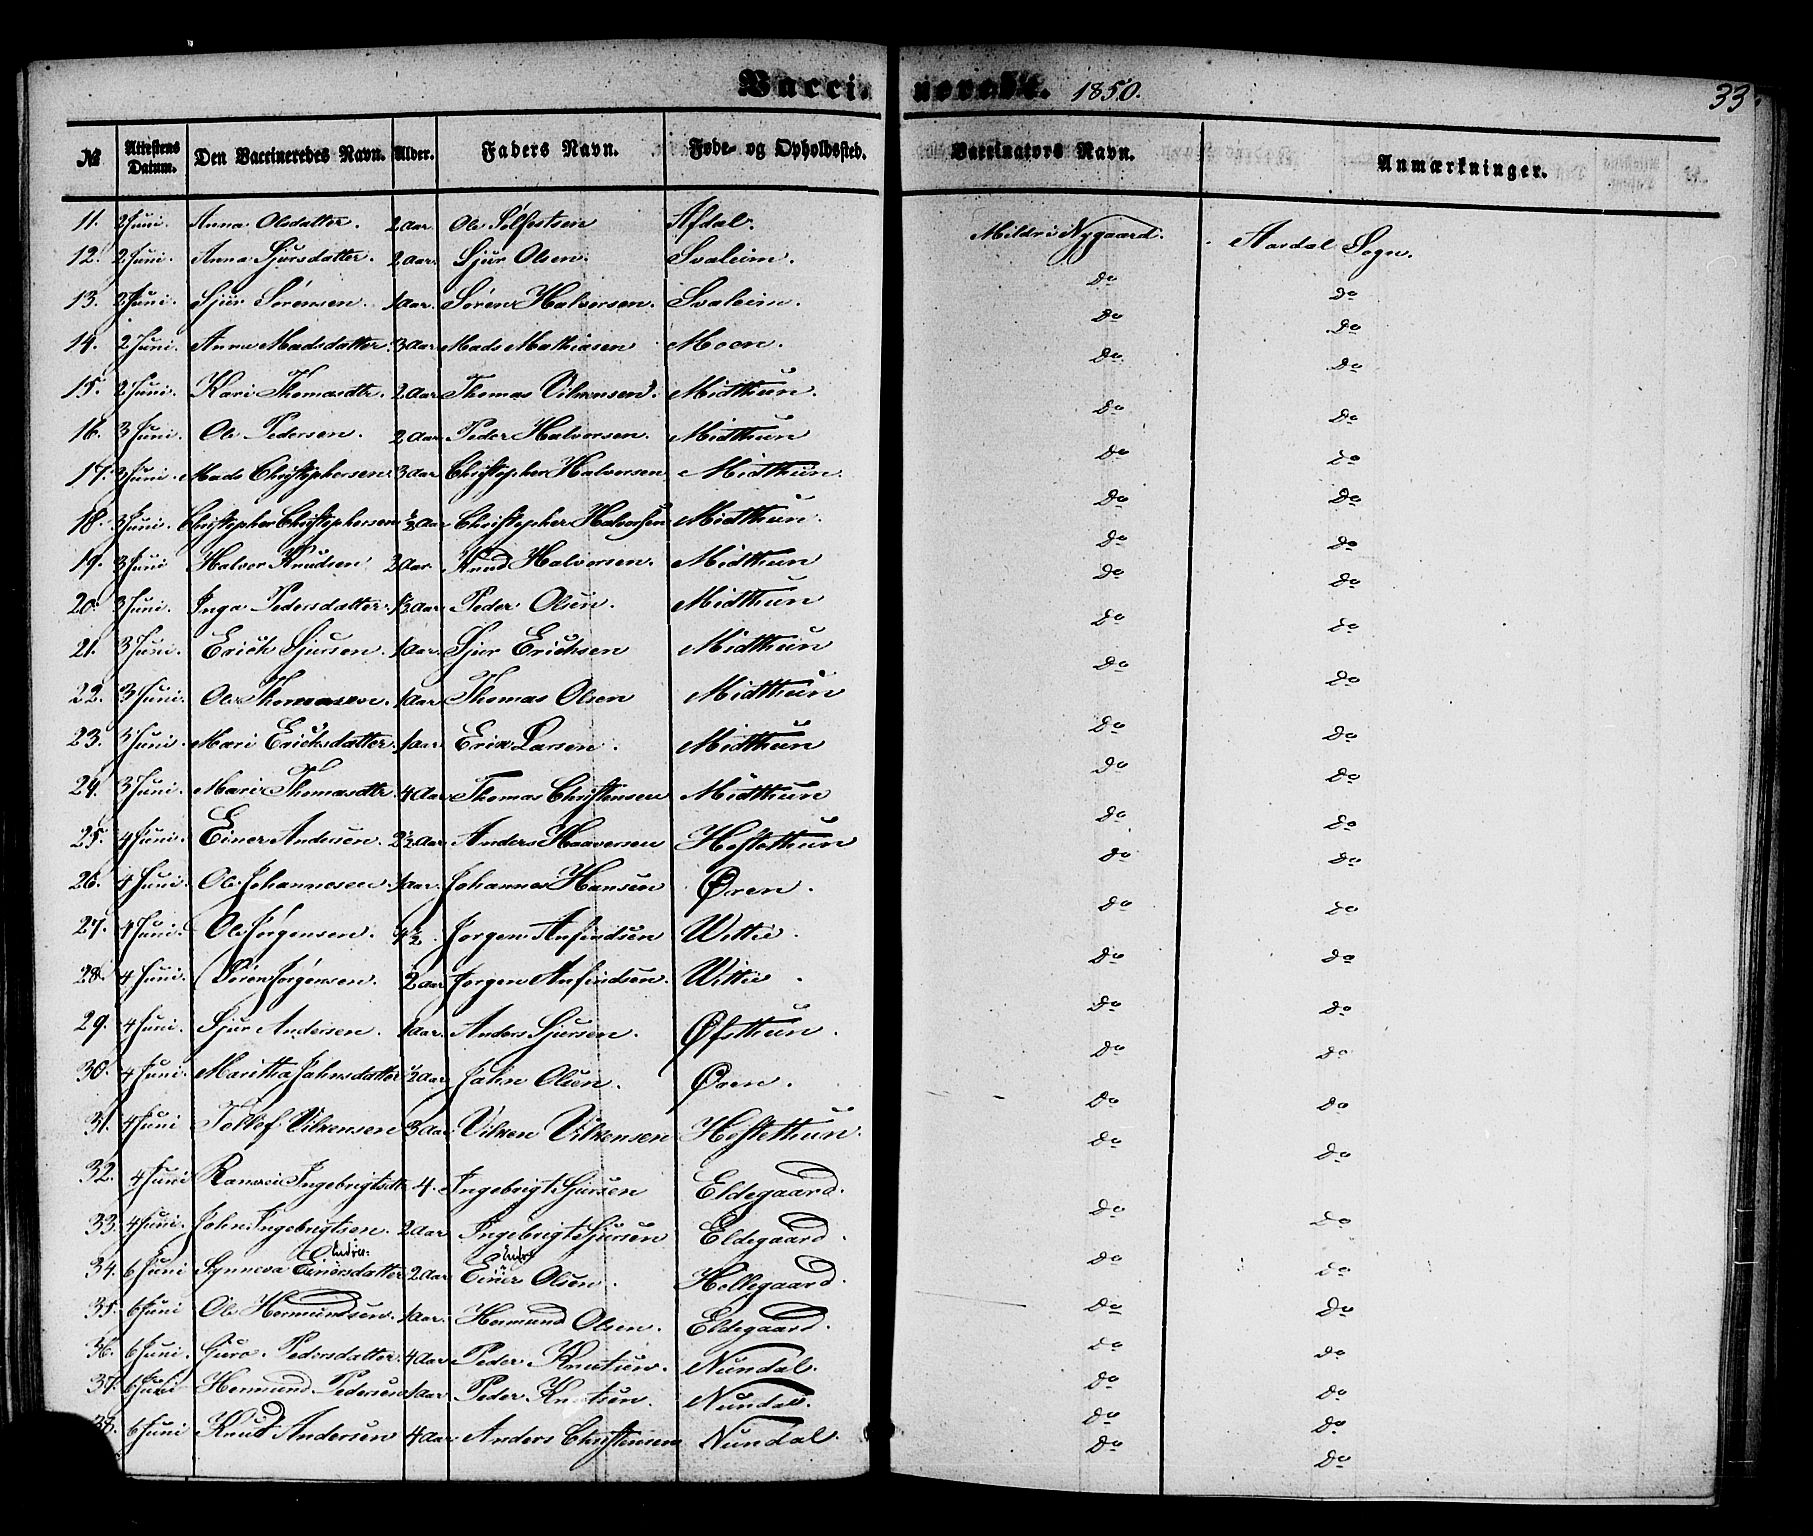 Vaccinerede. 1850. 33.
No Attestens Datum. Den Vaccineredes Navn. Alder. Faders Navn. Føde- og Opholdssted. Vaccinatørs Navn. Anmærkninger.
11. 2 Juni. Anna Olsdatter. 2 Aar. Ole Sølfestsen Afdal. Mildri Nygaard. Aardal Sogn.
12. 2 Juni. Anna Sjursdatter. 2 Aar. Sjur Olsen. Svaleim. do do
13. 2 Juni. Sjur Sørensen. 1 Aar. Søren Halvorsen. Svaleim. do do
14. 2 Juni. Anna Madsdatter. 3 Aar Mads Mathiasen Moen. do do
15. 2 Juni. Kari Thomasdtr. 2 Aar Thomas Vilkensen. Midthun. do do
16. 3 Juni. Ole Pedersen. 2 Aar. Peder Halvorsen. Midthun do do
17. 3 Juni. Mads Christophersen 3 Aar Christopher Halvorsen Midthun. do do
18. 3 Juni. Christopher Christophersen 1/3 Aar Christopher Halvorsen Midthun. do do
19. 3 Juni Halvor Knudsen 3 Aar. Knud Halvorsen. Midthun do do
20. 3 Juni. Inga Pedersdatter. 1/3 Aar. Peder Olsen. Midthun do do
21. 3 Juni. Erich Sjursen. 1 Aar. Sjur Erichsen Midthun do do
22. 3 Juni. Ole Thomassen. 1 Aar. Thomas Olsen Midthun do do
23. 3 Juni. Mari Erichsdatter. 1 Aar. Erik Larsen. Midthun do do
24. 3 Juni. Mari Thomasdtr. 4 Aar. Thomas Christensen Midthun do do
25. 4 Juni. Einer Andersen. 2 1/2 Aar. Anders Haaversen Hestethun do do
26. 4 Juni. Ole Johannesen. 1 Aar. Johannes Hansen Øren. do do
27. 4 Juni. Ole Jørgensen. 4 1/2. Jørgen Anfindsen Wettie. do do
28. 4 Juni. Søren Jørgensen. 2 Aar Jørgen Anfindsen. Wittie. do do
29. 4 Juni. Sjur Andersen. 1 Aar. Anders Sjursen. Øfstthun. do do
30. 4 Juni. Maritha Jahnsdatter 1/2 Aar. Jahn Olsen. Øren. do do
31. 4 Juni Tollef Vilkensen 3 Aar. Vilken Vilkensen Hestethun. do do
32. 4 Juni Ranvei Ingebrigtsdtr 4. Ingebrigt Sjursen Eldegaard. do do
33. 4 Juni. John Ingebrigtsen. 2 Aar Ingebrigt Sjursen Eldegaard. do do
34. 6 Juni Synneva Einersdatter 2 Aar Einer Olsen. Hellegaard. do do
35. 6 Juni Ole Hermundsen. 1 Aar. Hermund Olsen. Eldegaard. do do
36. 6 Juni. Guro Pedersdatter. 4 Aar Peder Knutsen. Nundal. do do
37. 6 Juni Hermund Pedersen 1 Aar. Peder Knutsen. Nundal. do do
38. 6 Juni Knud Andersen 4 Aar. Anders Christensen Nundal. do do
do do